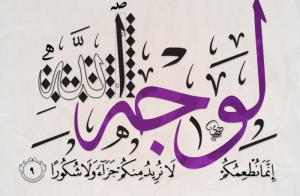 لِوَجْهِ اللَّهِ
إِنَّمَا نُطْعِمُكُمْ لَا نُرِيدُ مِنكُمْ جَزَاءً وَلَا شُكُورًا ٩